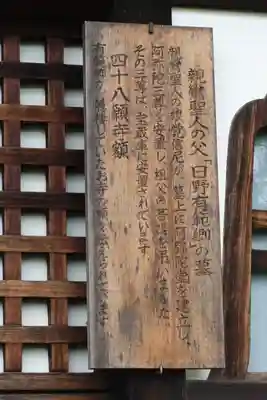 親鸞聖人の父「日野有範卿」の墓
親鸞聖人の娘覚信尼が、墓上に阿弥陀堂を建立し、
阿弥陀三尊を安置し、祖父の菩提を弔いました。
その三尊は、宝蔵庫に安置されています。
四十八願寺額
有範卿が していたお寺の額を ています